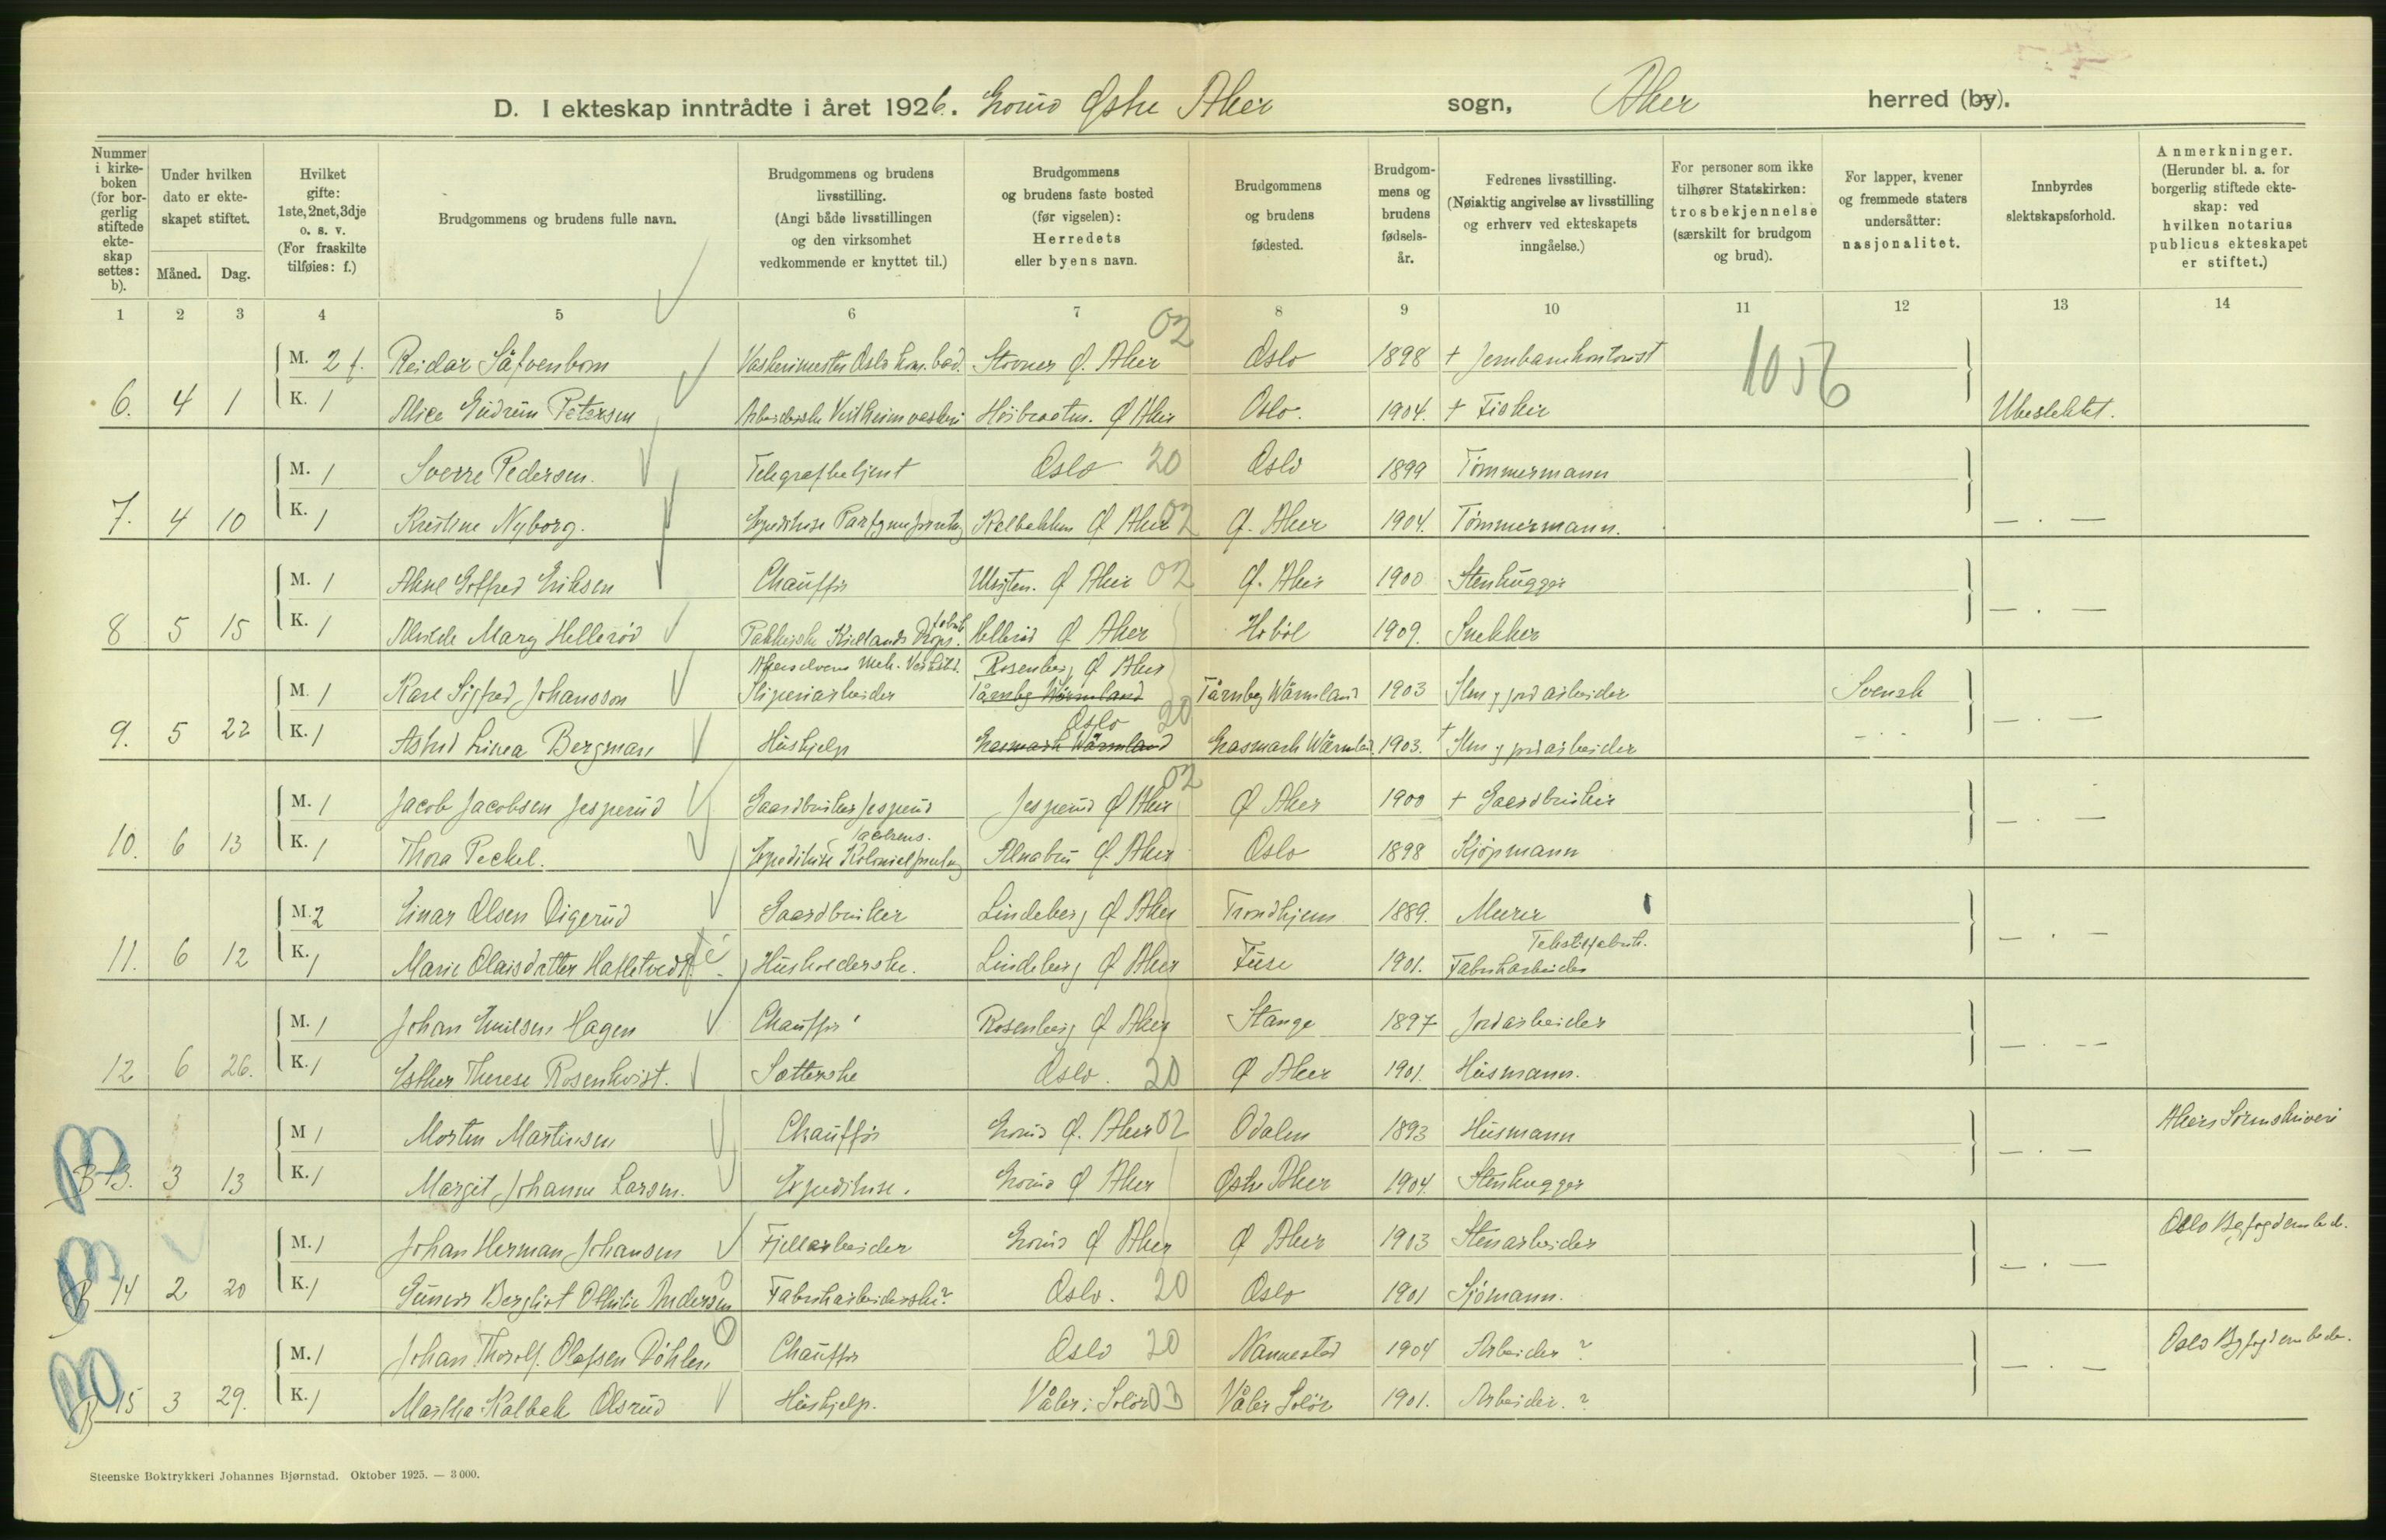 D. I ekteskap inntrådte i året 1926. Grorud Østre Aker sogn, Aker herred (by).
Nummer i kirke-boken (for bor-gerlig stiftede ekte-skap settes: b).
Under hvilken dato er ekte-skapet stiftet.
Måned. Dag.
Hvilket gifte: 1ste, 2net, 3dje o. s. v. (For fraskilte tilføies: f.)
Brudgommens og brudens fulle navn.
Brudgommens og brudens livsstilling. (Angi både livsstillingen og den virksomhet vedkommende er knyttet til.)
Brudgommens og brudens faste bosted (før vigselen): Herredets eller byens navn.
Brudgommens og brudens fødested.
Brudgom-mens og brudens fødsels-år.
Fedrenes livsstilling. (Nøiaktig angivelse av livsstilling og erhverv ved ekteskapets inngåelse.)
For personer som ikke tilhører Statskirken: trosbekjennelse (særskilt for brudgom og brud).
For lapper, kvener og fremmede staters undersåtter: nasjonalitet.
Innbyrdes slektskapsforhold.
Anmerkninger. (Herunder bl. a. for borgerlig stiftede ekte-skap: ved hvilken notarius publicus ekteskapet er stiftet.)
1 2 3 4 5 6 7 8 9 10 11 12 13 14
02
M. 2 f. Reidar Säfvenbom Vaskerimester Oslo kom. bad. Stovner Ø. Aker Oslo 1898 + Jernbanekontorist 1056
6. 4 1 K. 1 Alice Gudrun Petersen Arbeiderske Vestheim vaskeri Høibraaten. Ø Aker Oslo. 1904. + Fisker Ubeslektet.
M. 1 Sverre Pedersen. Telegrafbetjent Oslo 20 Oslo 1899 Tømmermann
7. 4 10 K. 1 Kristine Nyborg. Expeditrise Parfymeforretng Kalbakken Ø Aker 02 Ø. Aker 1904. Tømmermann. — . —
M. 1 Aksel Gotfred Eriksen Chauffør Ulsrten. Ø Aker 02 Ø. Aker 1900 Stenhugger
fabrik
8 5 15 K. 1 Alvilde Mary Hellerød Pakkerske Kiellands Drops. Hellerud Ø Aker Hobøl 1909. Snekker — . —
Akerselvens Mek. Verksted. Rosenberg Ø Aker
M. 1 Karl Sigfred Johansson Sliperiarbeider Tårnby Wärmland Tårnby Wärmland 1903 Sten og jordarbeider Svensk
Oslo 20
9. 5 22 K. 1 Astrid Linea Bergman Hushjelp Grasmark Wärmland Grasmark Wärmland. 1903. + Sten og jordarbeider — . . — — . —
02
M. 1 Jacob Jacobsen Jesperud Gaardbruker Jesperud Jesperud Ø Aker Ø Aker 1900 + Gaardbruker
10. 6 13 K. 1 Thora Peckel. Expeditrise Kolonialforretng Alnabru Ø. Aker Oslo 1898 Kjøpmann — . —
M. 2 Einar Olsen Digerud Gaardbruker Lindeberg Ø Aker Trondhjem 1889. Murer
Tekstilfabrik.
11. 6 12 K. 1 Marie Olaisdatter Husholderske. Lindeberg Ø Aker Fuse 1901. Fabrikarbeider — . —
M. 1 Johan Emilsen Hagen Chauffør Rosenberg Ø Aker Stange 1897 Jordarbeider
12 6 26. K. 1 Esther Therese Rosenkvist. Sætterske Oslo. 20 Ø Aker 1901. Husmann. — . —
M 1 Morten Martinsen Chauffør Grorud Ø. Aker 02 Odalen 1893 Husmann Akers Sorenskriveri
B 13. 3 13 K. 1 Margit Johanne Larsen. Expeditrise. Grorud Ø Aker Østre Aker 1904. Stenhugger — . —
M. 1 Johan Herman Johansen Fjellarbeider Grorud Ø Aker Ø Aker 1903 Stenarbeider Oslo Byfogdembede.
B 14 2 20 K. 1 Gunvor Bergliot Othilie Andersen Fabrikarbeiderske? Oslo. 20 Oslo 1901 Sjømann. — . —
M. 1 Johan Thorolf. Olafsen Døhlen Chauffør Oslo 20 Nannestad 1904 Arbeider ? Oslo Byfogdembede.
B 15 3 29. K. 1 Martha Kalbak Olsrud Hushjelp. Våler i Solør 03 Våler Solør 1901. Arbeider. ? — . —
Steenske Boktrykkeri Johannes Bjørnstad. Oktober 1925. — 3 000.